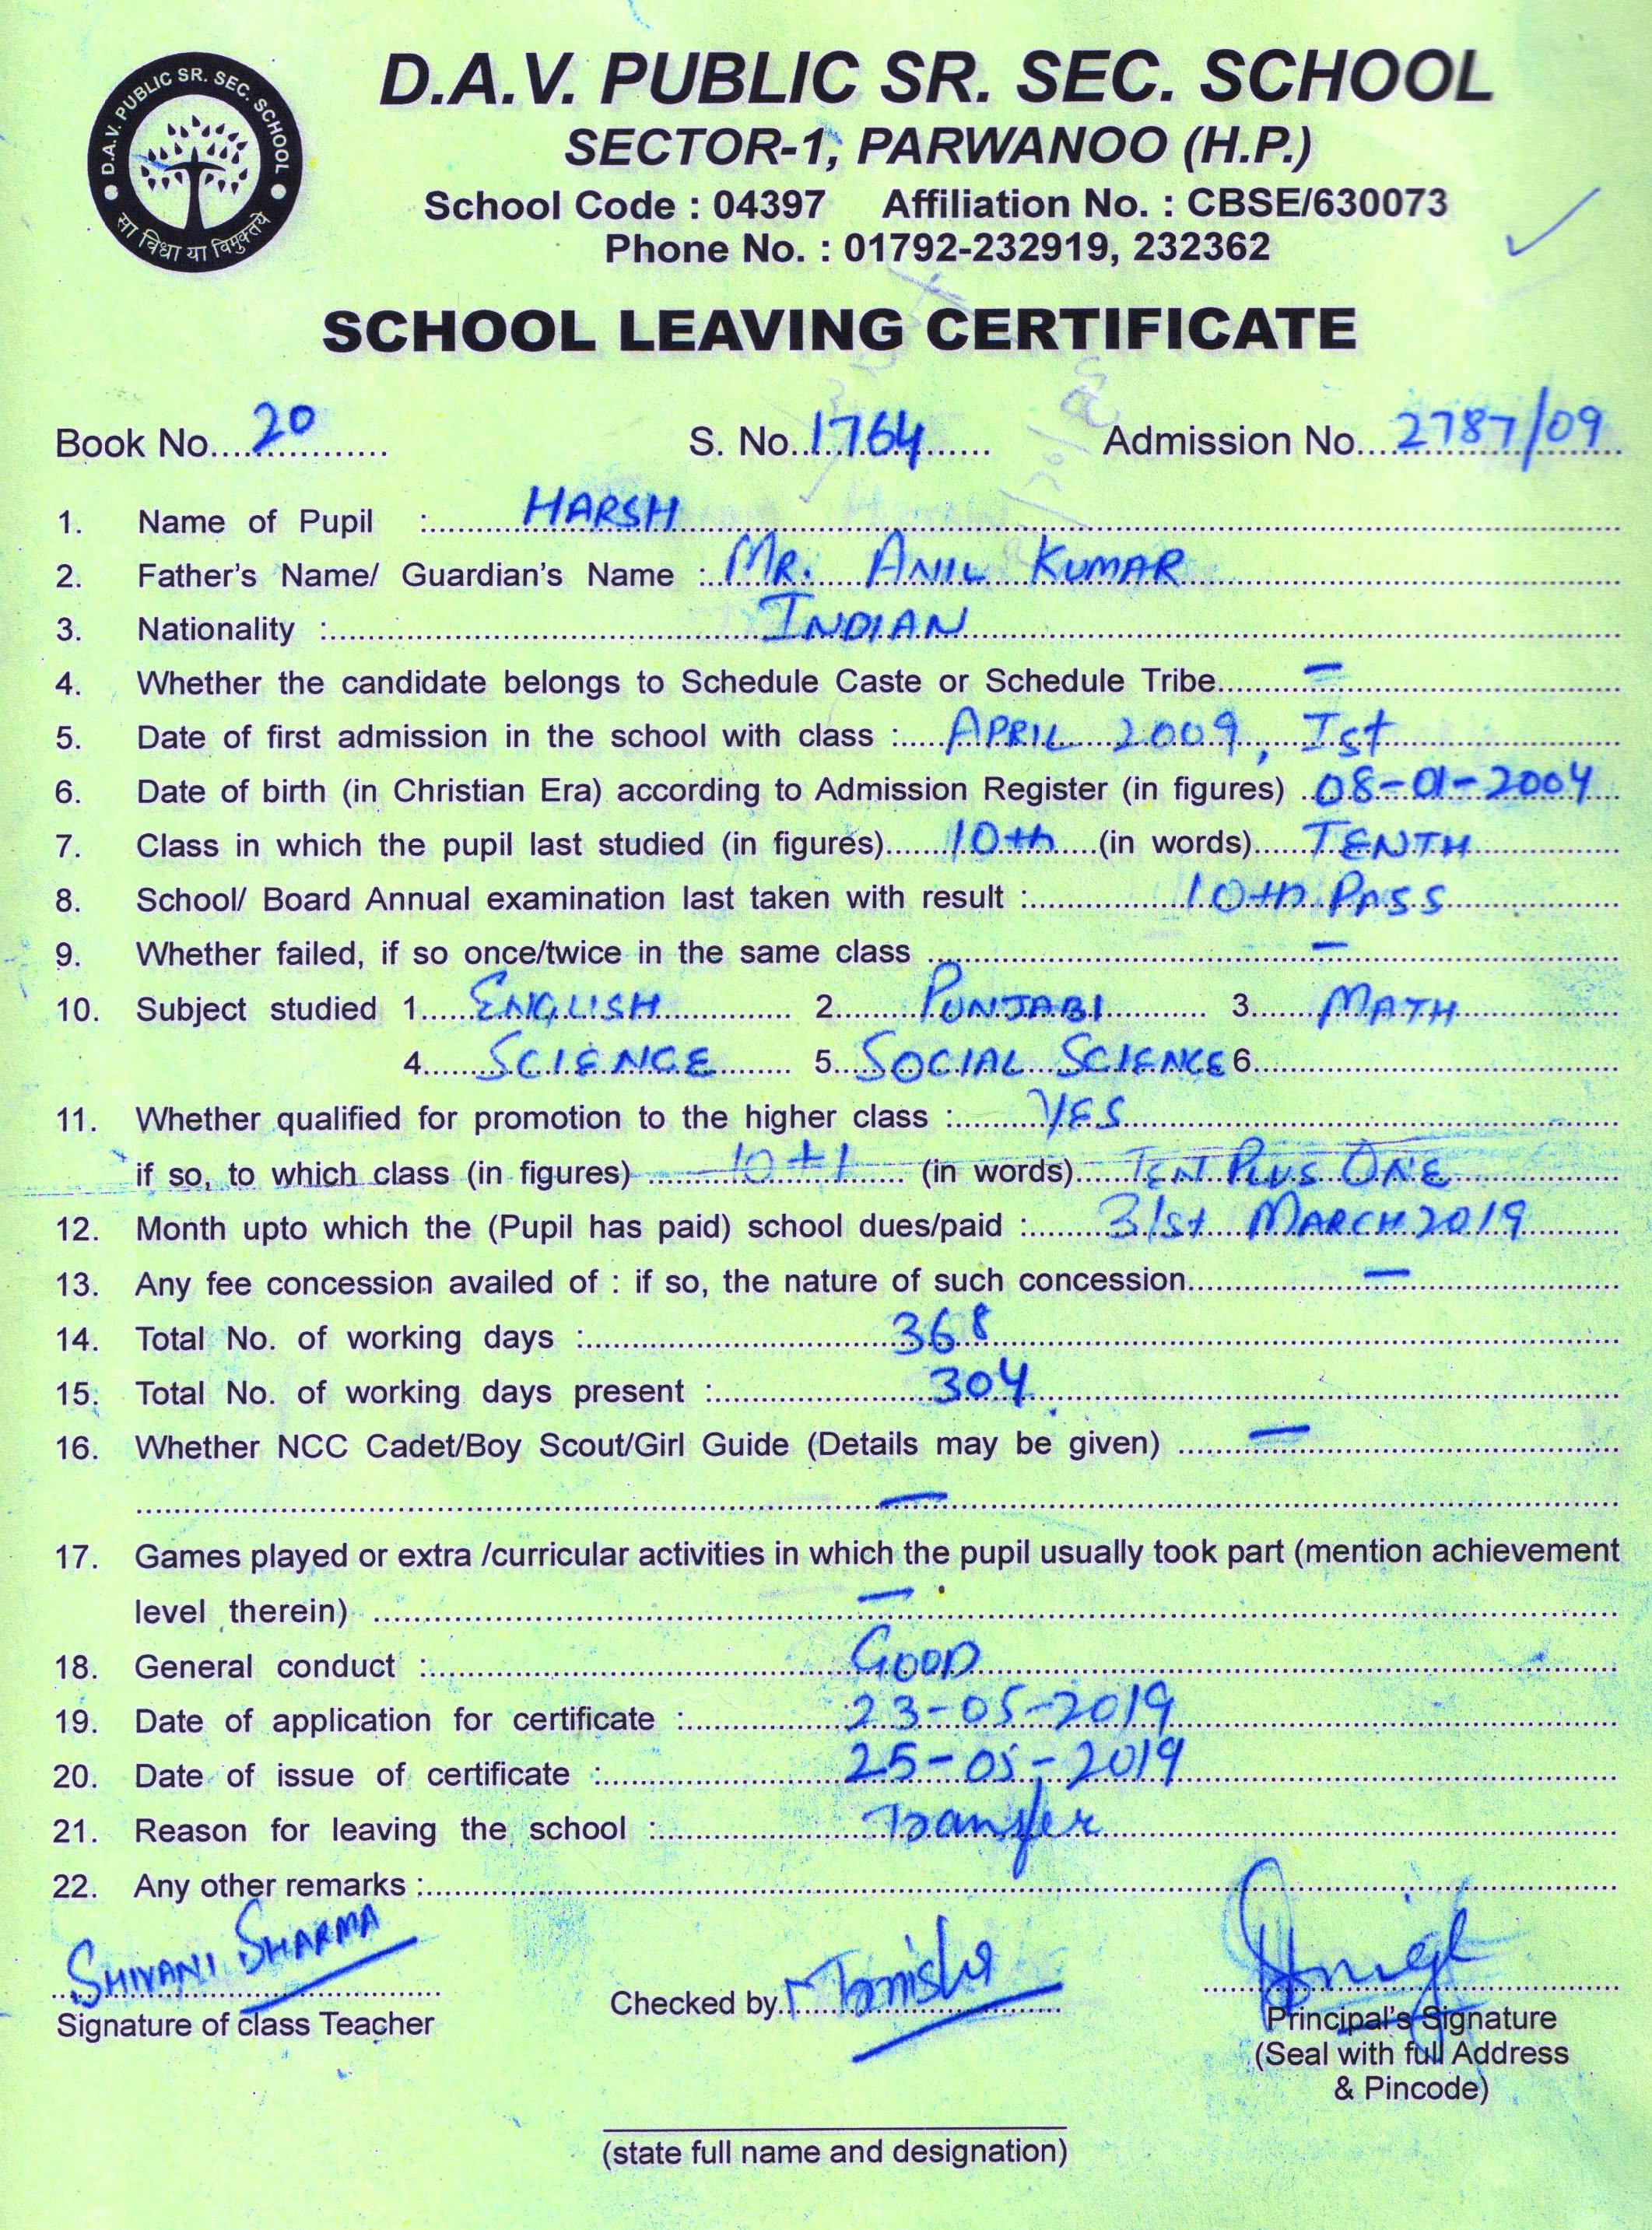 D.A.V. PUBLIC SR. SEC. SCHOOL
सा विधा या विमुक्तये
D.A.V. PUBLIC SR. SEC. SCHOOL
SECTOR-1, PARWANOO (H.P.)
School Code : 04397 Affiliation No. : CBSE/630073
Phone No. : 01792-232919, 232362
SCHOOL LEAVING CERTIFICATE
Book No. 20 S. No. 1764 Admission No. 2787/09
1. Name of Pupil : HARSH
2. Father's Name/ Guardian's Name : MR. ANIL KUMAR
3. Nationality : INDIAN
4. Whether the candidate belongs to Schedule Caste or Schedule Tribe. –
5. Date of first admission in the school with class : APRIL 2009, Ist
6. Date of birth (in Christian Era) according to Admission Register (in figures) 08-01-2004
7. Class in which the pupil last studied (in figures) 10th (in words) TENTH
8. School/ Board Annual examination last taken with result : 10th PASS
9. Whether failed, if so once/twice in the same class –
10. Subject studied 1. ENGLISH 2. PUNJABI 3. MATH
4. SCIENCE 5. SOCIAL SCIENCE 6.
11. Whether qualified for promotion to the higher class : YES
if so, to which class (in figures) 10+1 (in words) TEN PLUS ONE
12. Month upto which the (Pupil has paid) school dues/paid : 31st MARCH 2019
13. Any fee concession availed of : if so, the nature of such concession. –
14. Total No. of working days : 368
15. Total No. of working days present : 304
16. Whether NCC Cadet/Boy Scout/Girl Guide (Details may be given) –
–
17. Games played or extra /curricular activities in which the pupil usually took part (mention achievement
level therein) –
18. General conduct : GOOD
19. Date of application for certificate : 23-05-2019
20. Date of issue of certificate : 25-05-2019
21. Reason for leaving the school : Transfer
22. Any other remarks :
SHIVANI SHARMA
Signature of class Teacher
Checked by. Tanisha
Principal's Signature
(Seal with full Address
& Pincode)
(state full name and designation)